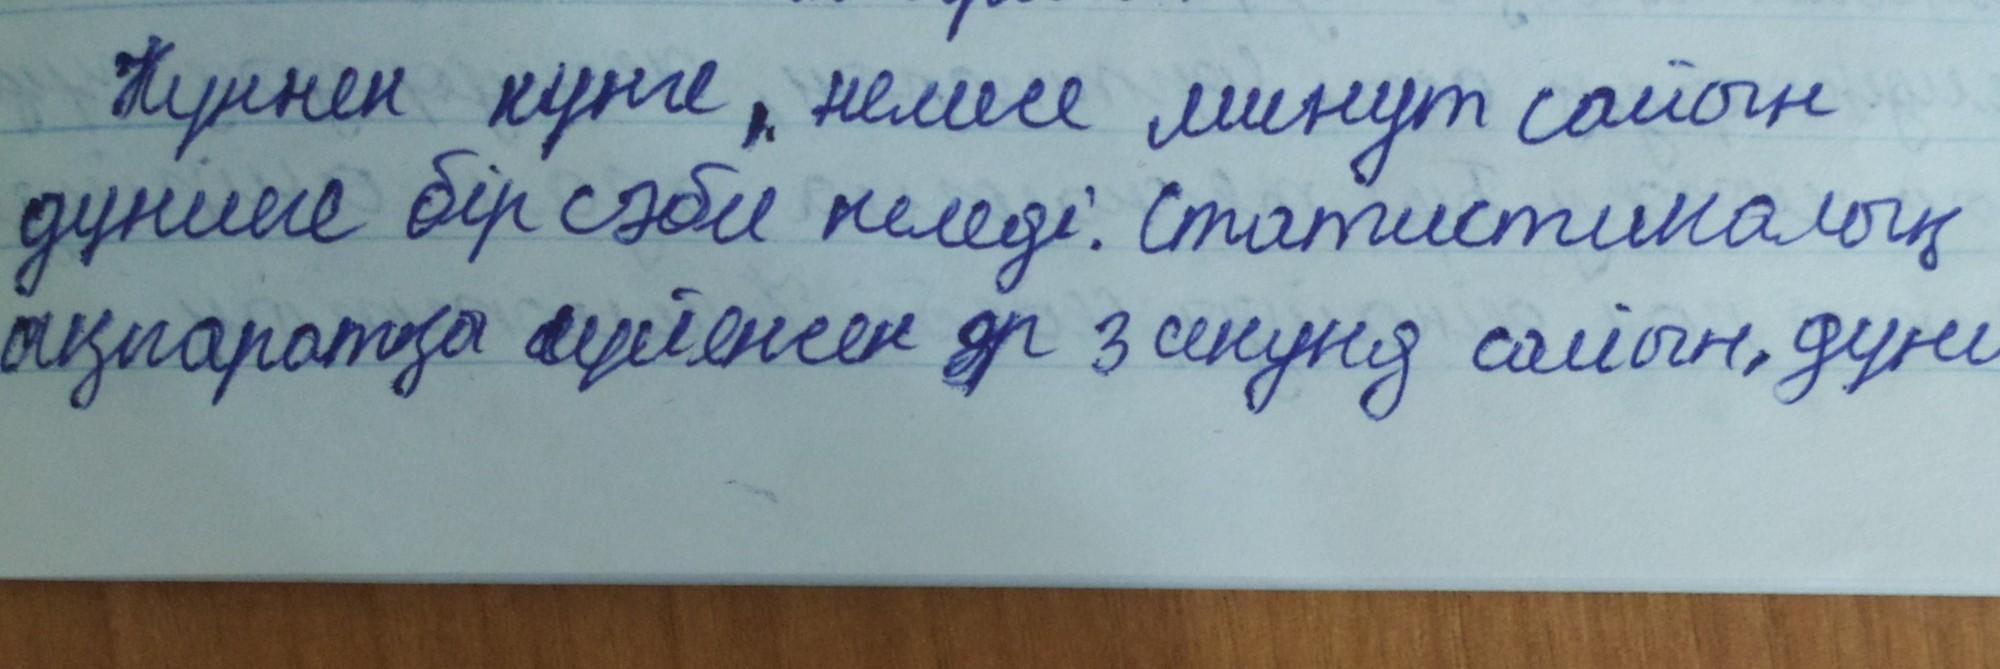 Күннен күнге, немесе минут сайын
дүниеге бір сәби келеді. Статистикалық
ақпаратқа сүйенсек әр 3 секунд сайын, дүни